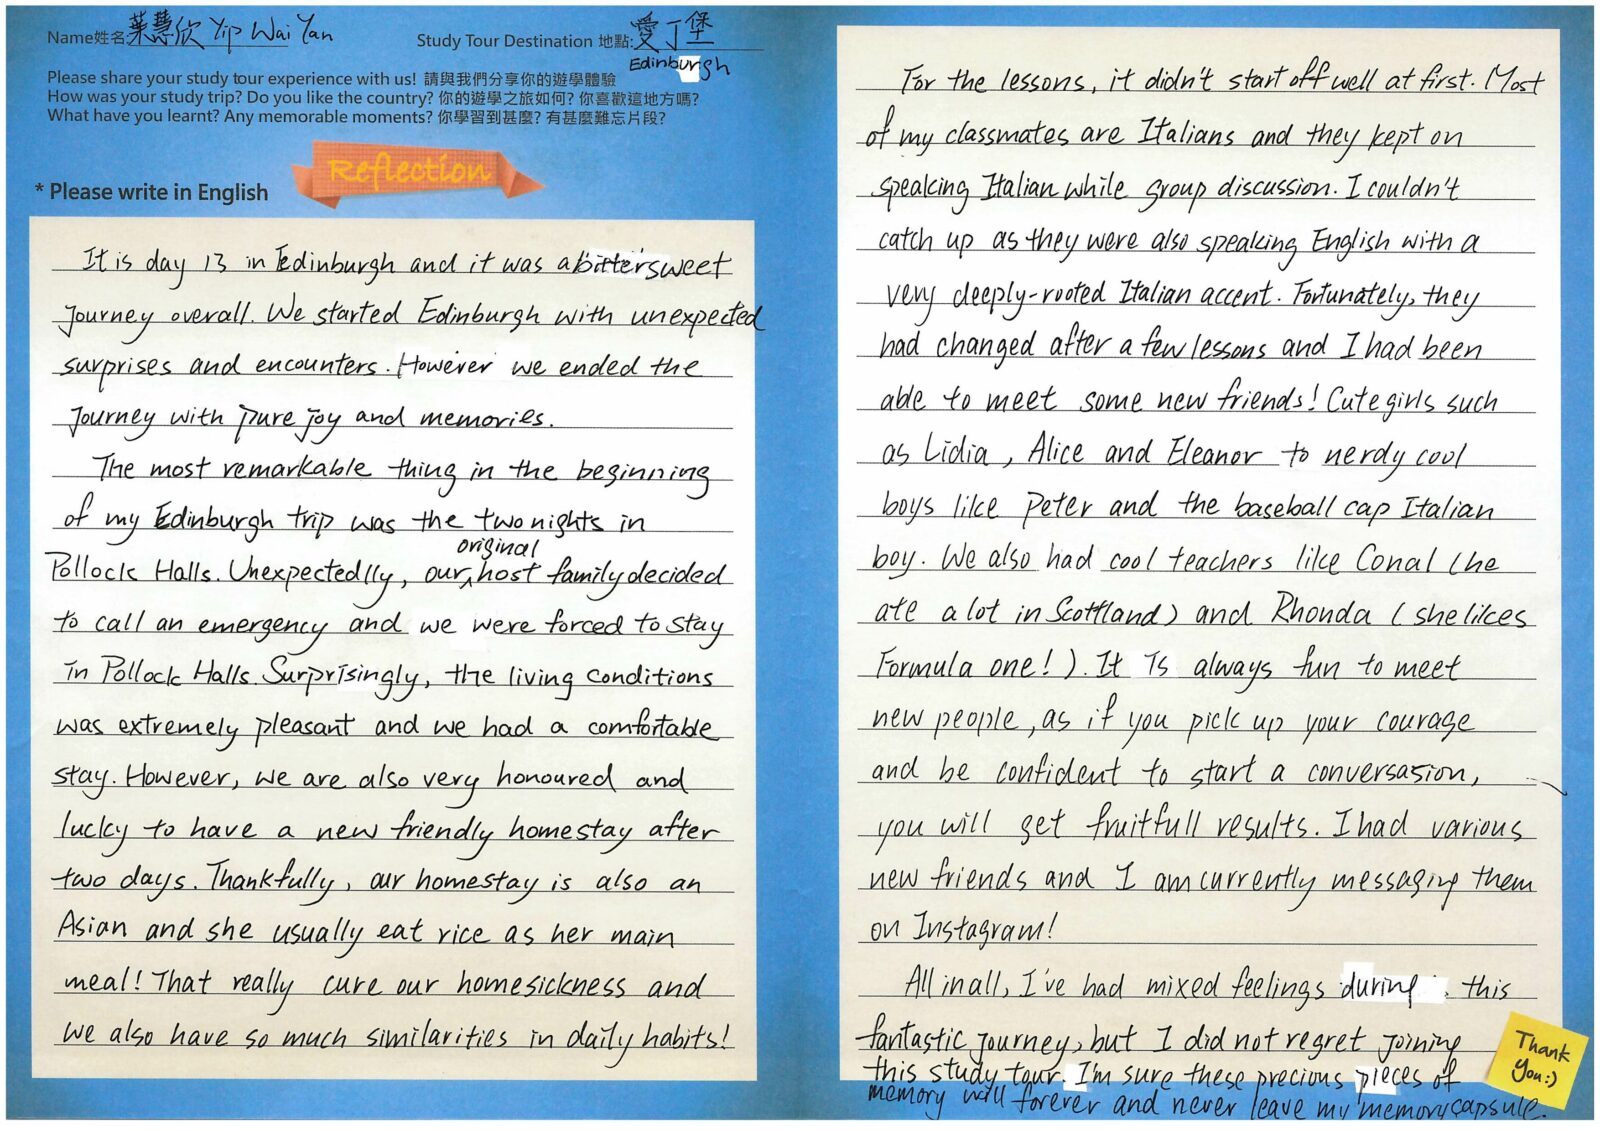 Name姓名: 葉慧欣 Yip Wai Yan
Study Tour Destination 地點: 愛丁堡
Edinburgh
Please share your study tour experience with us! 請與我們分享你的遊學體驗
How was your study trip? Do you like the country? 你的遊學之旅如何? 你喜歡這地方嗎?
What have you learnt? Any memorable moments? 你學習到甚麼? 有甚麼難忘片段?
Reflection
* Please write in English
It is day 13 in Edinburgh and it was a bittersweet
journey overall. We started Edinburgh with unexpected
surprises and encounters. However we ended the
journey with pure joy and memories.
The most remarkable thing in the beginning
of my Edinburgh trip was the two nights in
original
Pollock Halls. Unexpectedlly, our ^ host family decided
to call an emergency and we were forced to stay
in Pollock Halls. Surprisingly, the living conditions
was extremely pleasant and we had a comfortable
stay. However, we are also very honoured and
lucky to have a new friendly homestay after
two days. Thankfully, our homestay is also an
Asian and she usually eat rice as her main
meal! That really cure our homesickness and
we also have so much similarities in daily habits!
For the lessons, it didn't start off well at first. Most
of my classmates are Italians and they kept on
speaking Italian while group discussion. I couldn't
catch up as they were also speaking English with a
very deeply-rooted Italian accent. Fortunately, they
had changed after a few lessons and I had been
able to meet some new friends! Cute girls such
as Lidia, Alice and Eleanor to nerdy cool
boys like Peter and the baseball cap Italian
boy. We also had cool teachers like Conal (he
ate a lot in Scottland) and Rhonda (she likes
Formula one!). It is always fun to meet
new people, as if you pick up your courage
and be confident to start a conversasion,
you will get fruitfull results. I had various
new friends and I am currently messaging them
on Instagram!
All in all, I've had mixed feelings during this
fantastic journey, but I did not regret joining
this study tour. I'm sure these precious pieces of
memory will forever and never leave my memory capsule.
Thank
You:)